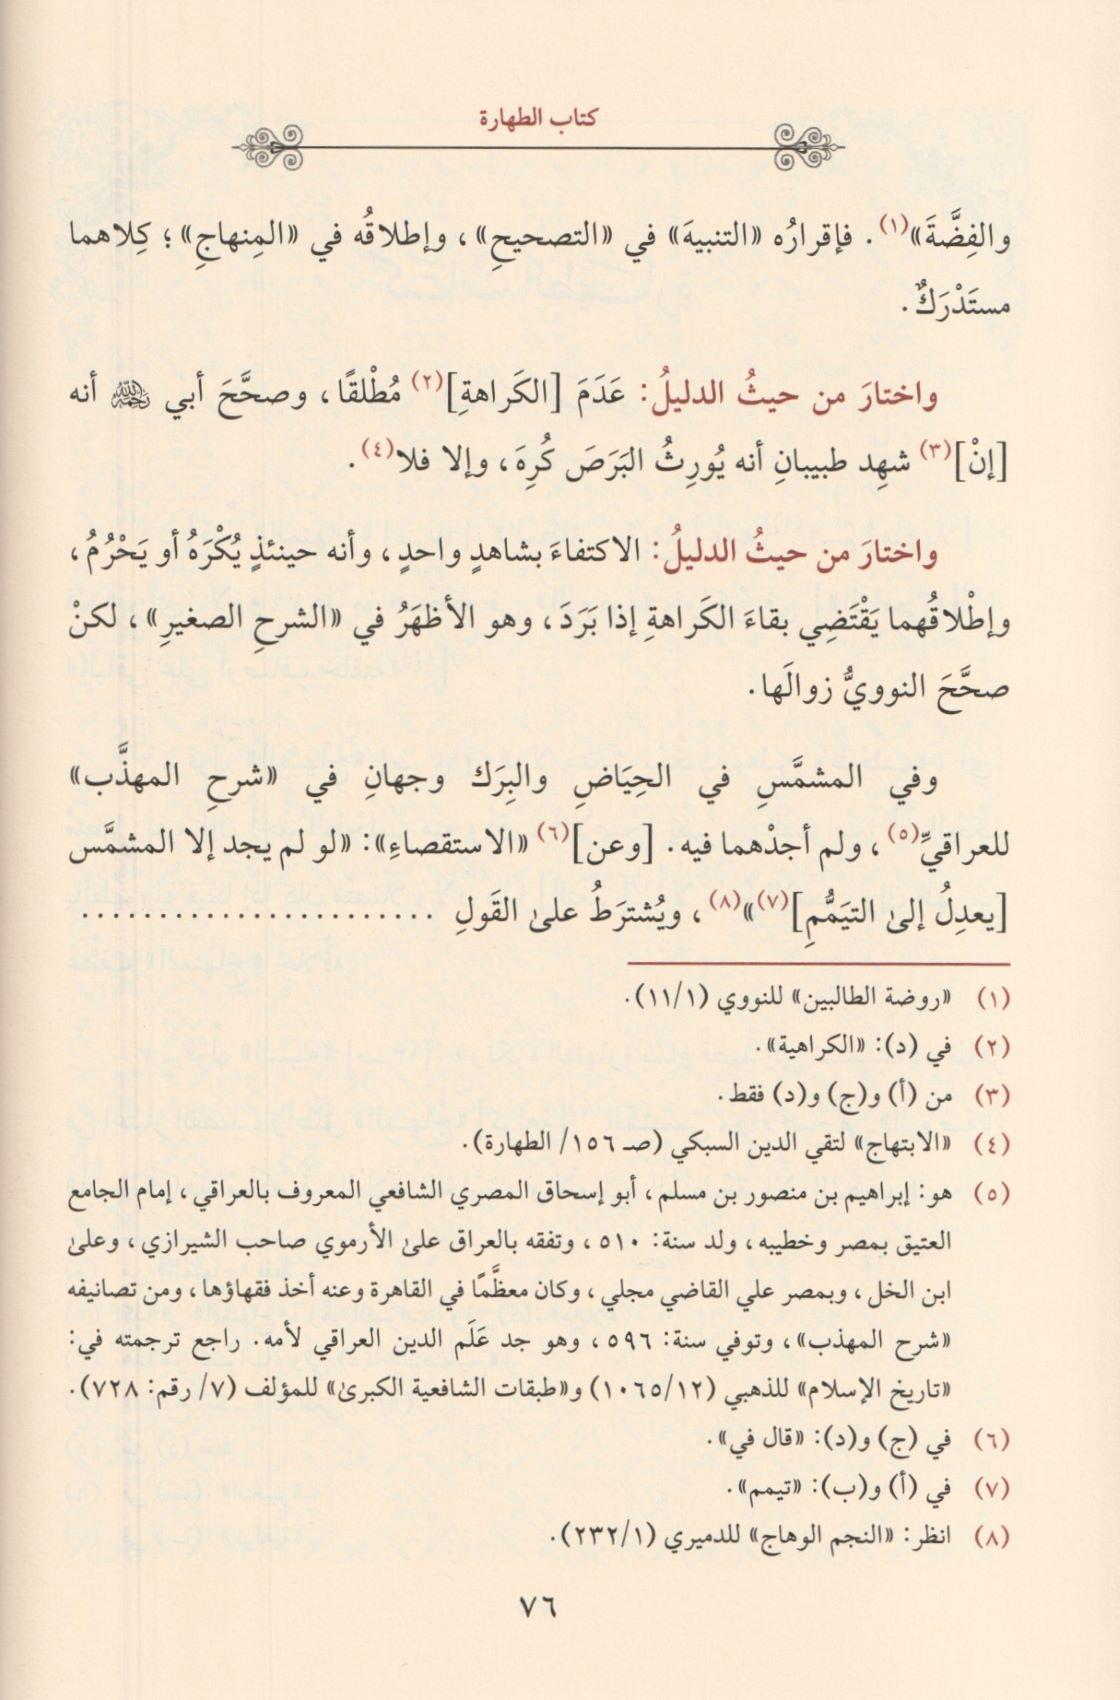 كتاب الطهارة
والفِضَّةَ»(١). فإقرارُه «التنبيهَ» في «التصحيحِ»، وإطلاقُه في «المِنهاجِ»؛ كِلاهما
مستَدْرَكٌ.
واختارَ من حيثُ الدليلُ: عَدَمَ [الكَراهةِ](٢) مُطْلقًا، وصحَّحَ أبي رحمه الله أنه
[إنْ](٣) شهِد طبيبانِ أنه يُورِثُ البَرَصَ كُرِهَ، وإلا فلا(٤).
واختارَ من حيثُ الدليلُ: الاكتفاءَ بشاهدٍ واحدٍ، وأنه حينئذٍ يُكْرَهُ أو يَحْرُمُ،
وإطْلاقُهما يَقْتَضِي بقاءَ الكَراهةِ إذا بَرَدَ، وهو الأظهَرُ في «الشرحِ الصغيرِ»، لكنْ
صحَّحَ النوويُّ زوالَها.
وفي المشمَّسِ في الحِيَاضِ والبِرَك وجهانِ في «شرحِ المهذَّب»
للعراقيِّ(٥)، ولم أجدْهما فيه. [وعن](٦) «الاستقصاءِ»: «لو لم يجد إلا المشمَّس
[يعدِلُ إلىٰ التيَمُّمِ](٧)»(٨)، ويُشترَطُ علىٰ القَولِ .......................
(١) «روضة الطالبين» للنووي (١١/١).
(٢) في (د): «الكراهية».
(٣) من (أ) و(ج) و(د) فقط.
(٤) «الابتهاج» لتقي الدين السبكي (صـ ١٥٦/ الطهارة).
(٥) هو: إبراهيم بن منصور بن مسلم، أبو إسحاق المصري الشافعي المعروف بالعراقي، إمام الجامع
العتيق بمصر وخطيبه، ولد سنة: ٥١٠، وتفقه بالعراق علىٰ الأرموي صاحب الشيرازي، وعلىٰ
ابن الخل، وبمصر علي القاضي مجلي، وكان معظَّمًا في القاهرة وعنه أخذ فقهاؤها، ومن تصانيفه
«شرح المهذب»، وتوفي سنة: ٥٩٦، وهو جد عَلَم الدين العراقي لأمه. راجع ترجمته في:
«تاريخ الإسلام» للذهبي (١٠٦٥/١٢) و«طبقات الشافعية الكبرىٰ» للمؤلف (٧/ رقم: ٧٢٨).
(٦) في (ج) و(د): «قال في».
(٧) في (أ) و(ب): «تيمم».
(٨) انظر: «النجم الوهاج» للدميري (٢٣٢/١).
٧٦